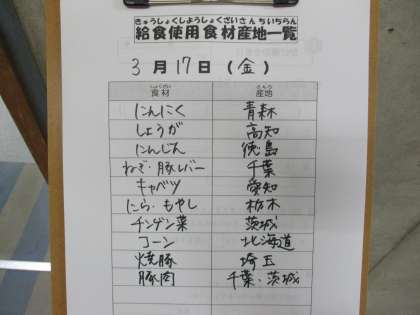 きゅうしょくしようしょくざいさんちいちらん
給食使用食材産地一覧
3月17日(金)
しょくざい さんち
食材 産地
にんにく 青森
しょうが 高知
にんじん 徳島
ねぎ・豚レバー 千葉
キャベツ 愛知
にら・もやし 栃木
チンゲン菜 茨城
コーン 北海道
焼豚 埼玉
豚肉 千葉・茨城